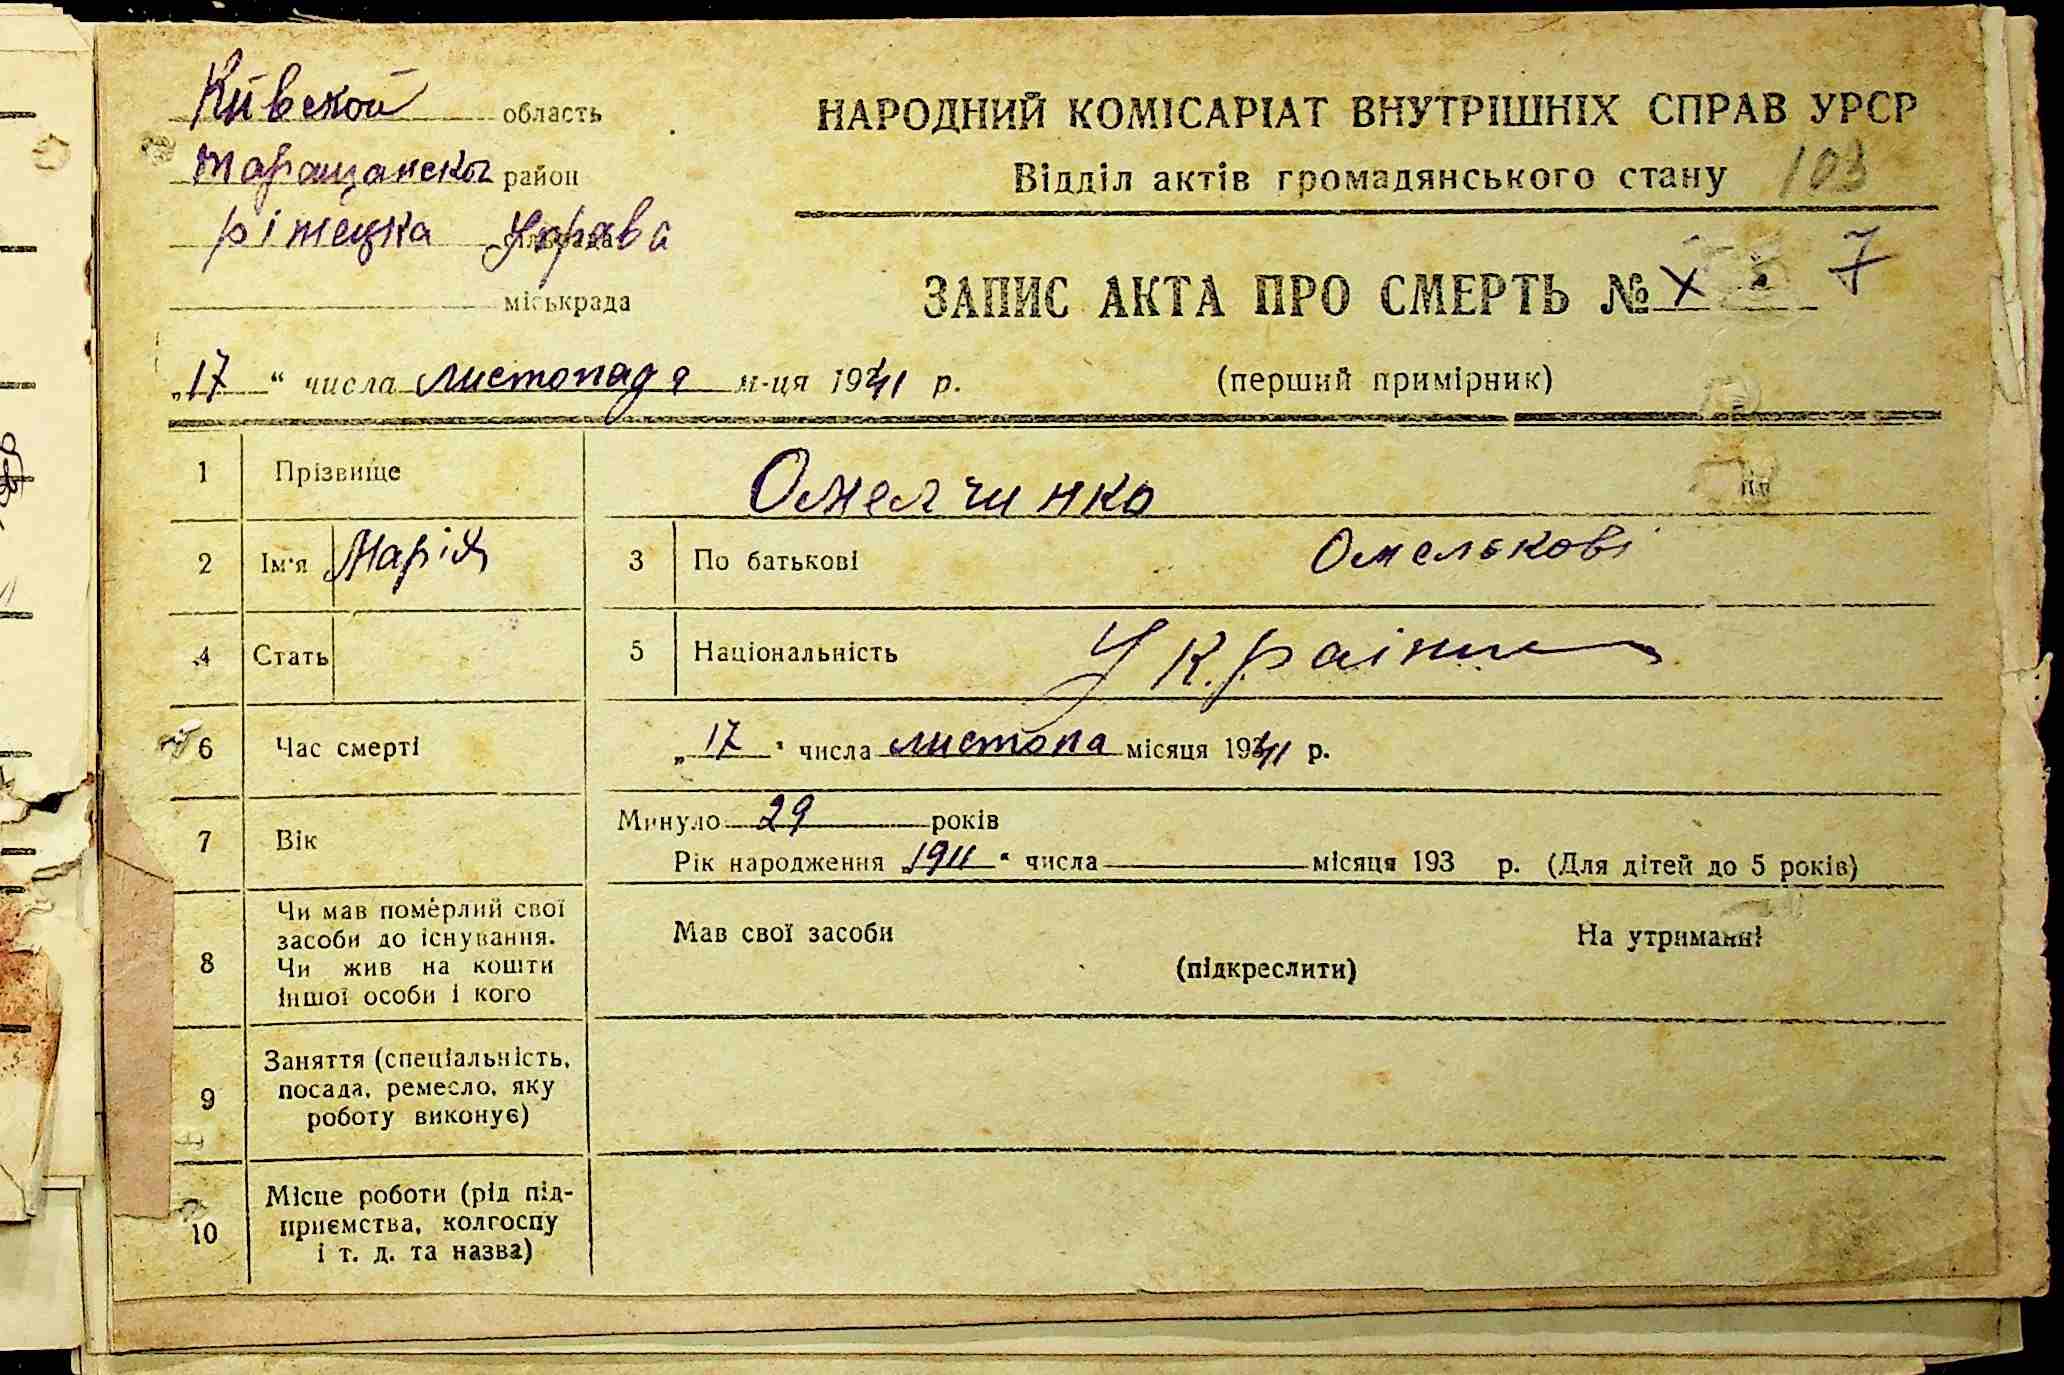 Київской область
Таращанско район
ріжецка Управа
міськрада
НАРОДНИЙ КОМІСАРІАТ ВНУТРІШНІХ СПРАВ УРСР
Відділ актів громадянського стану 103
ЗАПИС АКТА ПРО СМЕРТЬ № X 7
„17“ числа листопада м-ця 1941 р.
(перший примірник)
1 Прізвище Омелчинко
2 Ім'я Марія 3 По батькові Омелькові
4 Стать 5 Національність
6 Час смерті „17“ числа листопа місяця 1941 р.
7 Вік Минуло 29 років
Рік народження 1911 “ числа місяця 193 р. (Для дітей до 5 років)
8 Чи мав померлий свої
засоби до існування.
Чи жив на кошти
іншої особи і кого
Мав свої засоби На утриманні
(підкреслити)
9 Заняття (спеціальність,
посада, ремесло, яку
роботу виконує)
10 Місце роботи (рід під-
приємства, колгоспу
і т. д. та назва)